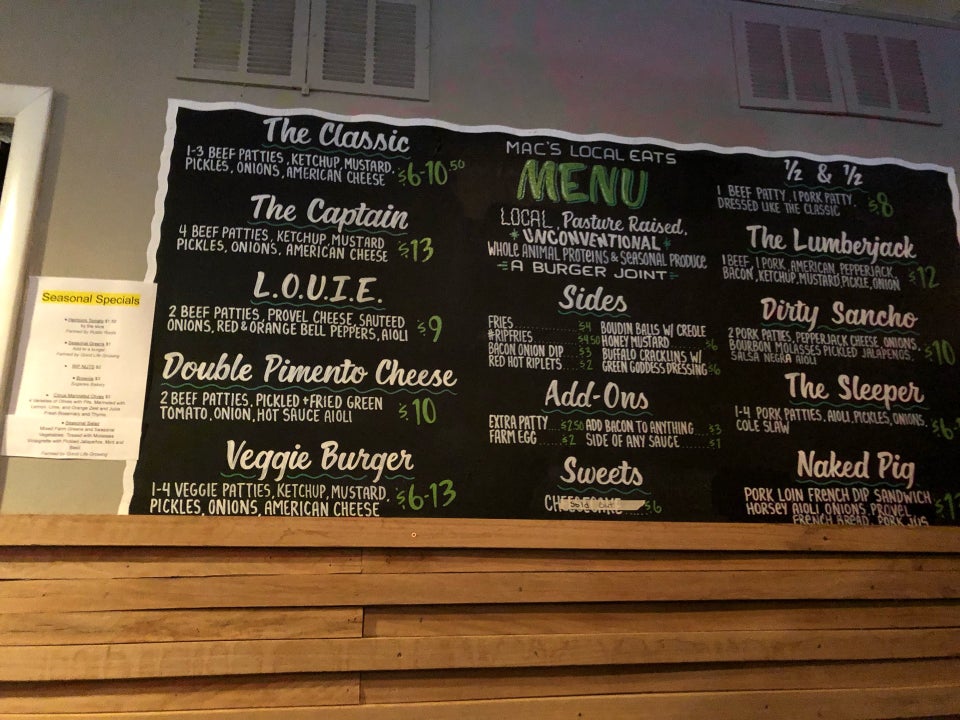 The Classic
1-3 BEEF PATTIES, KETCHUP, MUSTARD,
PICKLES, ONIONS, AMERICAN CHEESE $6-10.50
The Captain
4 BEEF PATTIES, KETCHUP, MUSTARD
PICKLES, ONIONS, AMERICAN CHEESE $13
L.O.U.I.E.
2 BEEF PATTIES, PROVEL CHEESE, SAUTEED
ONIONS, RED & ORANGE BELL PEPPERS, AIOLI $9
Double Pimento Cheese
2 BEEF PATTIES, PICKLED + FRIED GREEN
TOMATO, ONION, HOT SAUCE AIOLI $10
Veggie Burger
1-4 VEGGIE PATTIES, KETCHUP, MUSTARD,
PICKLES, ONIONS, AMERICAN CHEESE $6-13
MAC'S LOCAL EATS
MENU
LOCAL, Pasture Raised,
* UNCONVENTIONAL *
WHOLE ANIMAL PROTEINS & SEASONAL PRODUCE
-A BURGER JOINT-
Sides
FRIES $4
#RIPFRIES $4.50
BACON ONION DIP $3
RED HOT RIPLETS $2
BOUDIN BALLS W/ CREOLE
HONEY MUSTARD $6
BUFFALO CRACKLINS W/
GREEN GODDESS DRESSING $6
Add-Ons
EXTRA PATTY $2.50
FARM EGG $2
ADD BACON TO ANYTHING $3
SIDE OF ANY SAUCE $1
Sweets
CHEESECAKE $6
Sold Out
1/2 & 1/2
1 BEEF PATTY, 1 PORK PATTY,
DRESSED LIKE THE CLASSIC $8
The Lumberjack
1 BEEF, 1 PORK, AMERICAN, PEPPERJACK,
BACON, KETCHUP, MUSTARD, PICKLE, ONION $12
Dirty Sancho
2 PORK PATTIES, PEPPERJACK CHEESE, ONIONS,
BOURBON MOLASSES PICKLED JALAPENOS,
SALSA NEGRA AIOLI $10
The Sleeper
1-4 PORK PATTIES, AIOLI, PICKLES, ONIONS,
COLE SLAW $6-
Naked Pig
PORK LOIN FRENCH DIP SANDWICH
HORSEY AIOLI, ONIONS, PROVEL,
FRENCH BREAD, PORK JUS
Seasonal Specials
Heirloom Tomato $1.50
by the slice
Seasonal Greens $1
Add to a burger
Farmed by Good Life Growing
RIP NUTS $2
Brownie $3
Bakery
Citrus Marinated Olives $5
4 Varieties of Olives with Pits, Marinated with
Lemon, Lime, and Orange Zest and Juice
Fresh Rosemary and Thyme
Seasonal Salad
Mixed Farm Greens and Seasonal
Vegetables, Tossed with Molasses
Vinaigrette with Pickled Jalapeños, Mint and
Basil
Farmed by Good Life Growing